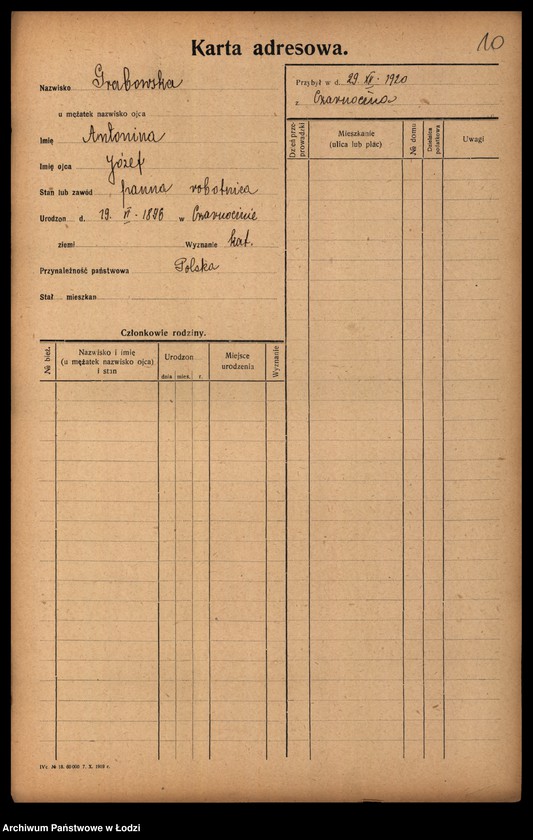 Karta adresowa.
10
Nazwisko Grabowska
u mężatek nazwisko ojca
Imię Antonina
Imię ojca Józef
Stan lub zawód panna robotnica
Urodzon d. 19. VI. 1896 w Czarnocinie
ziemi Wyznanie kat.
Przynależność państwowa Polska
Stał mieszkan
Członkowie rodziny.
№ bież.
Nazwisko i imię
(u mężatek nazwisko ojca)
i stan
Urodzon
dnia mies. r.
Miejsce
urodzenia
Wyznanie
Przybył w d. 29. XII. 1920
z Czarnocina
Dzień prze-
prowadzki
Mieszkanie
(ulica lub plac)
№ domu
Dzielnica
podatkowa
Uwagi
IVc. № 18. 80000 7. X. 1919 r.
Archiwum Państwowe w Łodzi